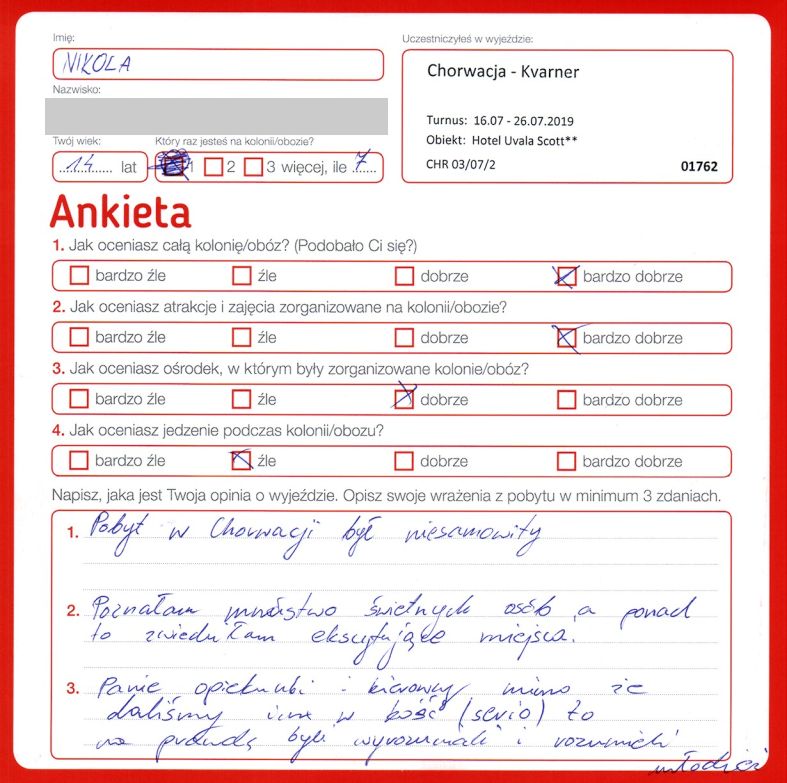 Imię:
NIKOLA
Nazwisko:
Twój wiek:
14 lat
Który raz jesteś na kolonii/obozie?
1 2 3 więcej, ile 7
Uczestniczyłeś w wyjeździe:
Chorwacja - Kvarner
Turnus: 16.07 - 26.07.2019
Obiekt: Hotel Uvala Scott**
CHR 03/07/2 01762
Ankieta
1. Jak oceniasz całą kolonię/obóz? (Podobało Ci się?)
bardzo źle źle dobrze bardzo dobrze
2. Jak oceniasz atrakcje i zajęcia zorganizowane na kolonii/obozie?
bardzo źle źle dobrze bardzo dobrze
3. Jak oceniasz ośrodek, w którym były zorganizowane kolonie/obóz?
bardzo źle źle dobrze bardzo dobrze
4. Jak oceniasz jedzenie podczas kolonii/obozu?
bardzo źle źle dobrze bardzo dobrze
Napisz, jaka jest Twoja opinia o wyjeździe. Opisz swoje wrażenia z pobytu w minimum 3 zdaniach.
1. Pobyt w Chorwacji był niesamowity
2. Poznałam mnóstwo świetnych osób, a ponad
to zwiedziłam ekscytujące miejsca.
3. Panie opiekunki i kierowcy mimo że
daliśmy im w kość (serio) to
na prawdę byli wyrozumiali i rozumieli
młodzież